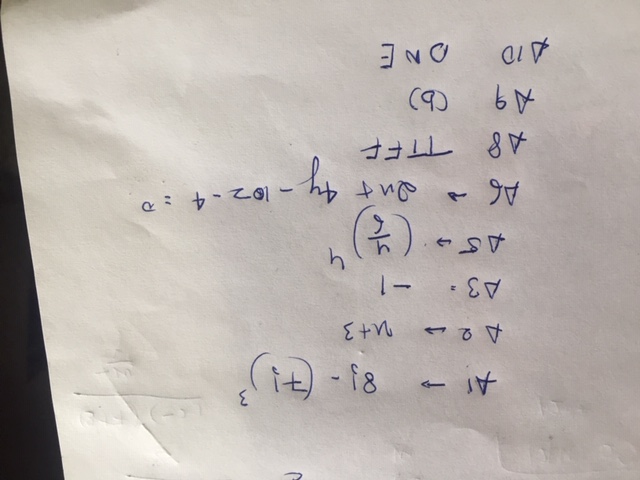 A1 → 8! - (7!)³
A2 → n+3
A3 = -1
A5 → (4/6)⁴
A6 → 2x + 4y - 10z - 4 = 0
A8 TTFF
A9 (b)
A10 DNE